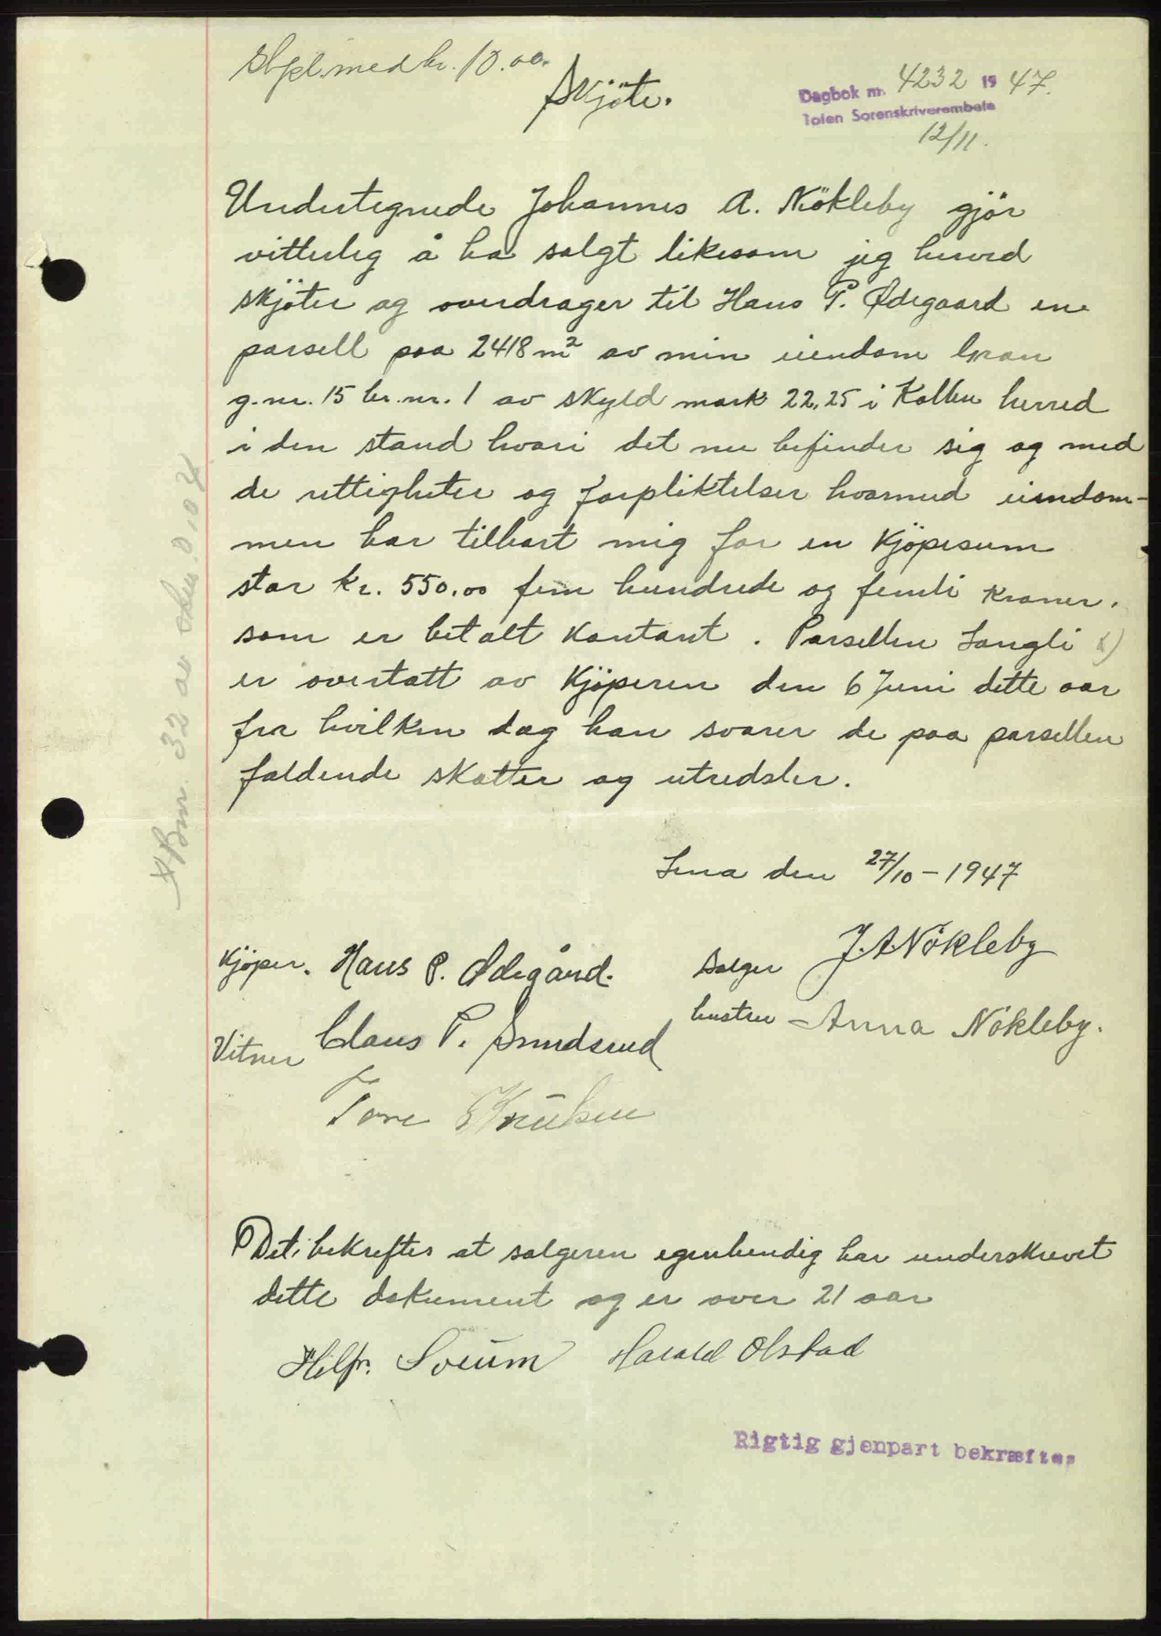 Stpl. med kr. 10.00.
Skjöte.
Dagbok nr. 4232 1947.
Toten Sorenskriverembete
12/11.
Undertegnede Johannes A. Nökleby gjör
vitterlig å ha solgt likesom jeg herved
skjöter og overdrager til Hans P. Ødegaard en
parsell paa 2418 m² av min eiendom
g.nr. 15 br.nr. 1 av skyld mark 22,25 i Kolbu herred
i den stand hvori det nu befinder sig og med
de rettigheter og forpliktelser hvormed eiendom-
men har tilhørt mig for en Kjöpesum
stor kr. 550.00 fem hundrede og femti Kroner.
som er betalt Kontant. Parsellen Langli x)
er overtatt av Kjöperen den 6 Juni dette aar
fra hvilken dag han svarer de paa parsellen
faldende skatter og utredsler.
x) Bnr. 32 av
Lena den 27/10 - 1947
Kjöper. Hans P. Ødegård.
Selger J.A. Nökleby
hustru - Anna Nökleby.
Vitner Claus P. Sundsrud
Tore
Det bekreftes at selgeren egenhendig har underskrevet
dette dokument og er over 21 aar
Hilfr. Soeum Harald Olstad
Rigtig gjenpart bekræftes